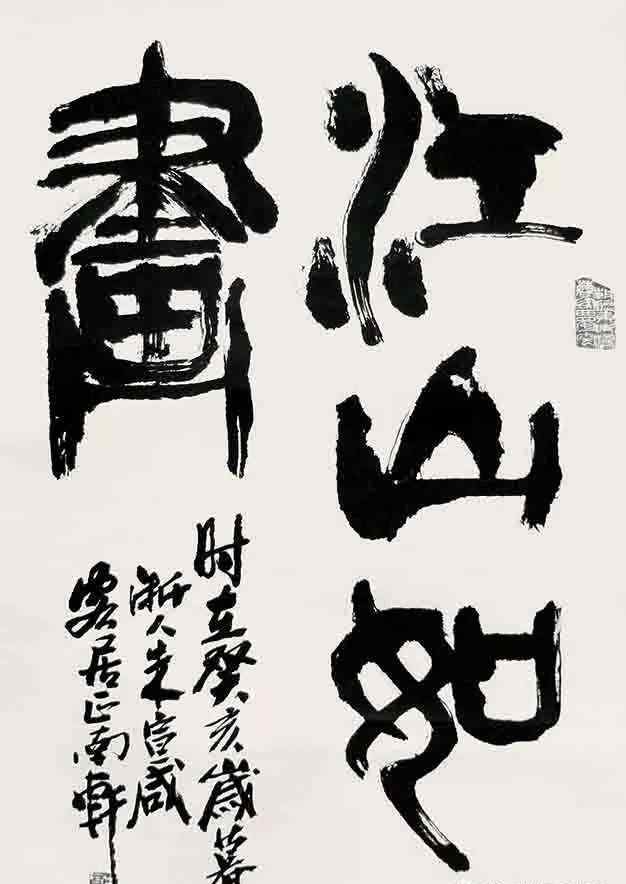 江山如
畫
时在癸亥歲暮
浙人朱宣咸
客居正南軒